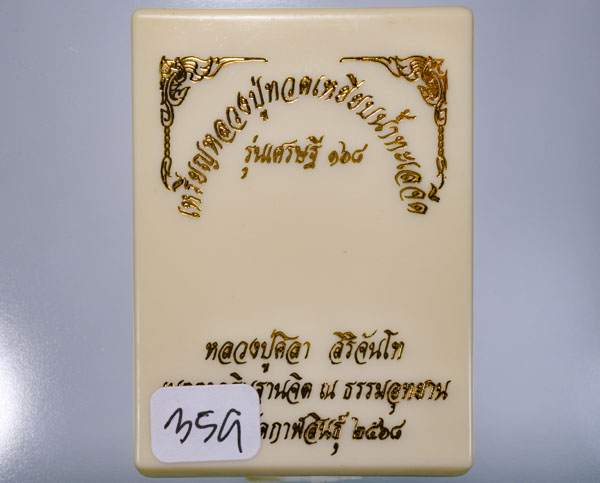 เหรียญหลวงปู่ทวดเหยียบน้ำทะเลจืด
รุ่นเศรษฐี ๑๖๘
หลวงปู่ศิลา สิริจันโท
ณ ธรรมอุทยาน
กาฬสินธุ์ ๒๕๖๘
359